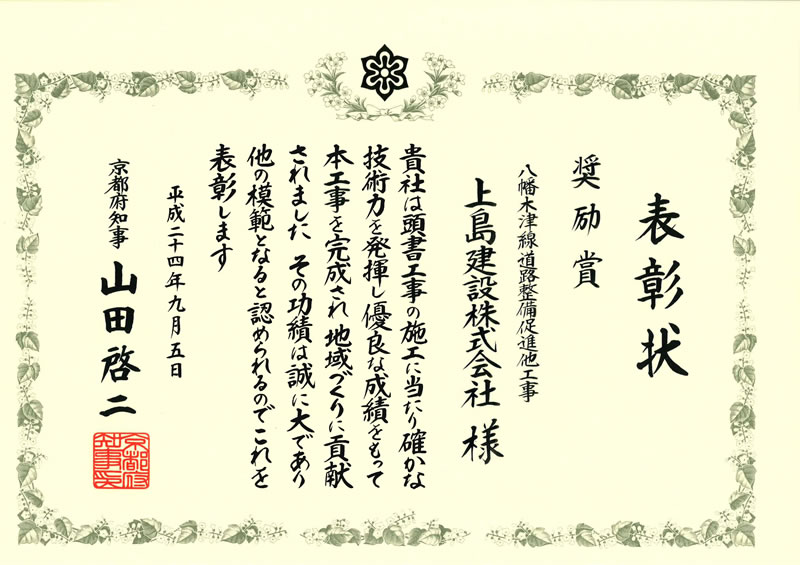 表彰状
奨励賞
八幡木津線道路整備促進他工事
上島建設株式会社 様
貴社は頭書工事の施工に当たり確かな
技術力を発揮し優良な成績をもって
本工事を完成され 地域づくりに貢献
されました その功績は誠に大であり
他の模範となると認められるのでこれを
表彰します
平成二十四年九月五日
京都府知事 山田啓二
京都府
知事印